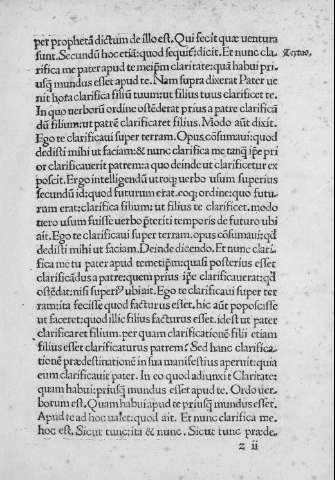 per prophetā dictum de illo est. Qui fecit quæ ventura
sunt. Secundū hoc etiā: quod sequiť: dicit. Et nunc cla-
rifica me pater apud te meipm̄ claritate: quā habui pri-
usq̄ mundus esset apud te. Nam supra dixerat Pater ue
nit hora clarifica filiū tuum: ut filius tuus clarificet te.
In quo uerborū ordine ostēderat prius a patre clarificā
dū filium: ut patrē clarificaret filius. Modo aūt dixit.
Ego te clarificaui super terram. Opus cōsumaui: quod
dedisti mihi ut faciam: & nunc clarifica me tanq̄ ip̄e pri
or clarificauerit patrem: a quo deinde ut clarificetur ex
poscit. Ergo intelligendū utroq; uerbo usum superius
secundū id: quod futurum erat. eoq; ordine: quo futu
rum erat: clarifica filium: ut filius te clarificet. modo
uero usum fuisse uerbo p̄teriti temporis de futuro ubi
ait. Ego te clarificaui super terram. opus cōsumaui: qd̄
dedisti mihi ut faciam. Deinde dicendo. Et nunc clari-
fica me tu pater apud temetip̄m: quasi posterius esset
clarificādus a patre: quem prius ip̄e clarificauerat: qd̄
ostēdat: nisi superi9 ubi ait. Ego te clarificaui super ter
ram: ita fecisse quod facturus esset. hic aūt poposcisse
ut faceret: quod illic filius facturus esset. idest ut pater
clarificaret filium. per quam clarificationē filii etiam
filius esset clarificaturus patrem? Sed hanc clarifica-
tionē prædestinatiōne in sua manifestius aperuit: quia
eum clarificauit pater. In eo quod adiunxit Claritate:
quam habui: priusq̄ mundus esset apud te. Ordo uer-
borum est. Quam habui apud te priusq̄ mundus esset.
Apud te ad hoc ualet: quod ait. Et nunc clarifica me.
hoc est. Sicut tunc: ita & nunc. Sicut tunc præde-
z ii